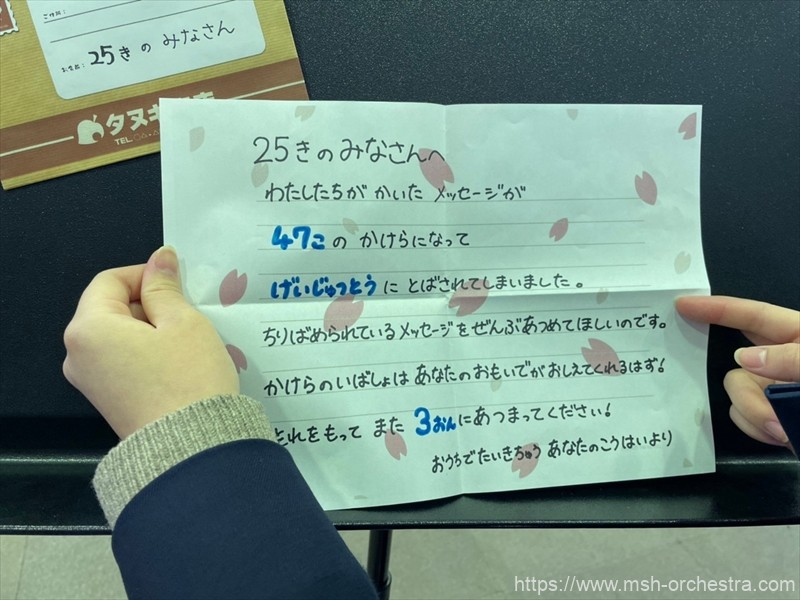 ご住所:
お名前: 25きの みなさん
タヌキ
TEL
25きの みなさんへ
わたしたちが かいた メッセージが
47この かけらになって
げいじゅつとう に とばされてしまいました。
ちりばめられているメッセージをぜんぶあつめてほしいのです。
かけらのいばしょは あなたのおもいでがおしえてくれるはず!
それをもって また 3おんにあつまってください!
おうちでたいきちゅう あなたのこうはいより
https://www.msh-orchestra.com